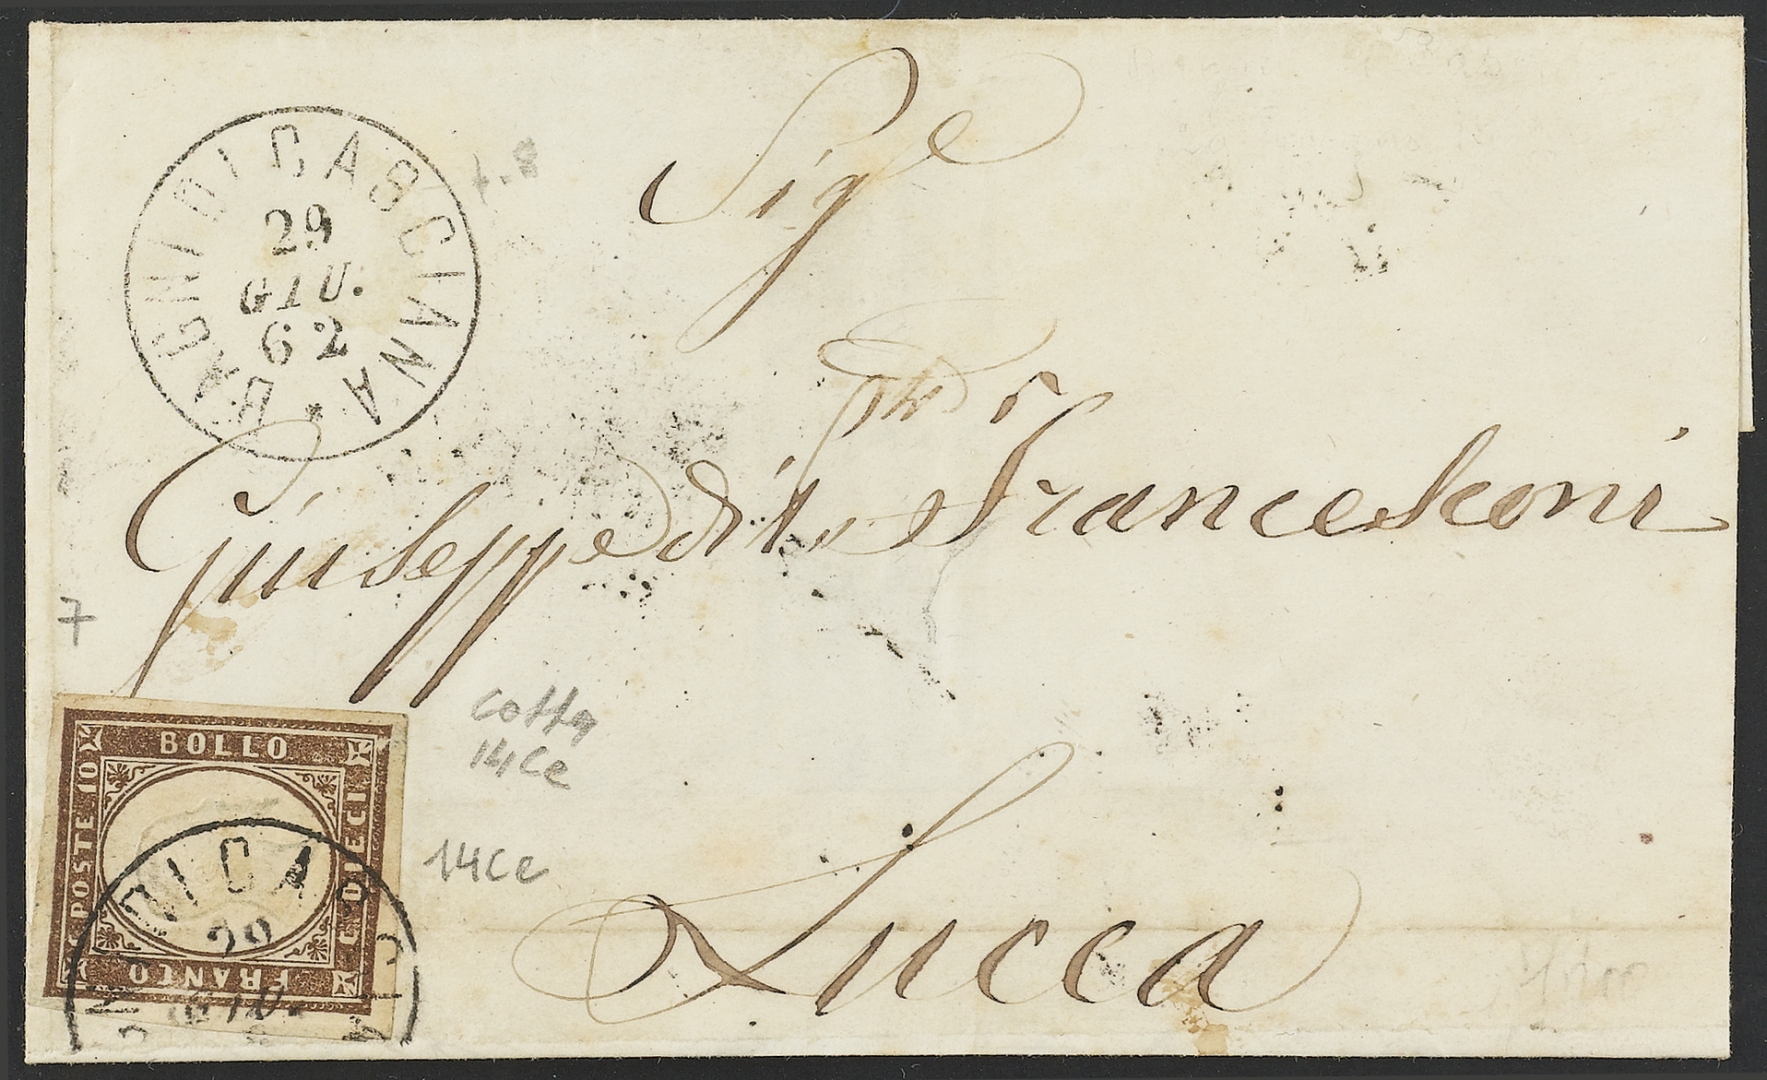 BAGNI DI CASCIANA
29
GIU.
62
Sigre
Giuseppe di Francesconi
7
BOLLO
POSTE 10
C. DIECI
FRANCO
DI CASC
29
GIU.
cotta
14Ce
14Ce
Lucca